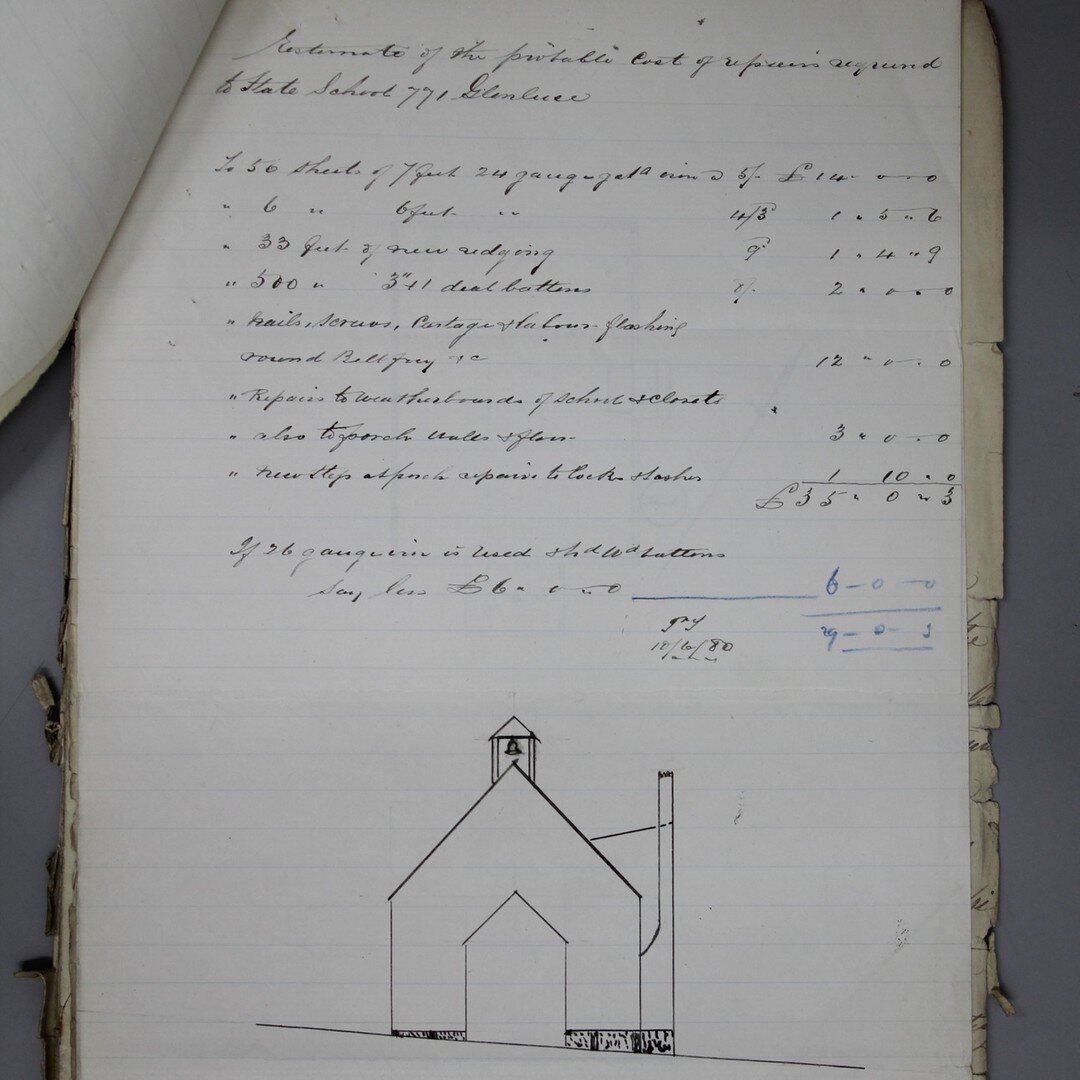 Estimate of the probable Cost of repairs required
to State School 771 Glenluce
To 56 sheets of 7 feet 24 gauge gald iron @ 5/- £14 " 0 " 0
" 6 " 6 feet " " 4/3 1 " 5 " 6
" 33 feet of new ridging 9d 1 " 4 " 9
" 500 " 3"x1 deal battens 8/- 2 " 0 " 0
" Nails, Screws, Cartage & labour flashing
round Bellfrey &c 12 " 0 " 0
" Repairs to weatherboards of School & Closets
" also to porch walls & floor 3 " 0 " 0
" New Step at porch repairs to locks & sashes 1 10 " 0
£35 " 0 " 3
If 26 gauge iron is used & hd wd battens
say less £6 " 0 " 0 6 - 0 - 0
10/6/80 29 - 0 - 3